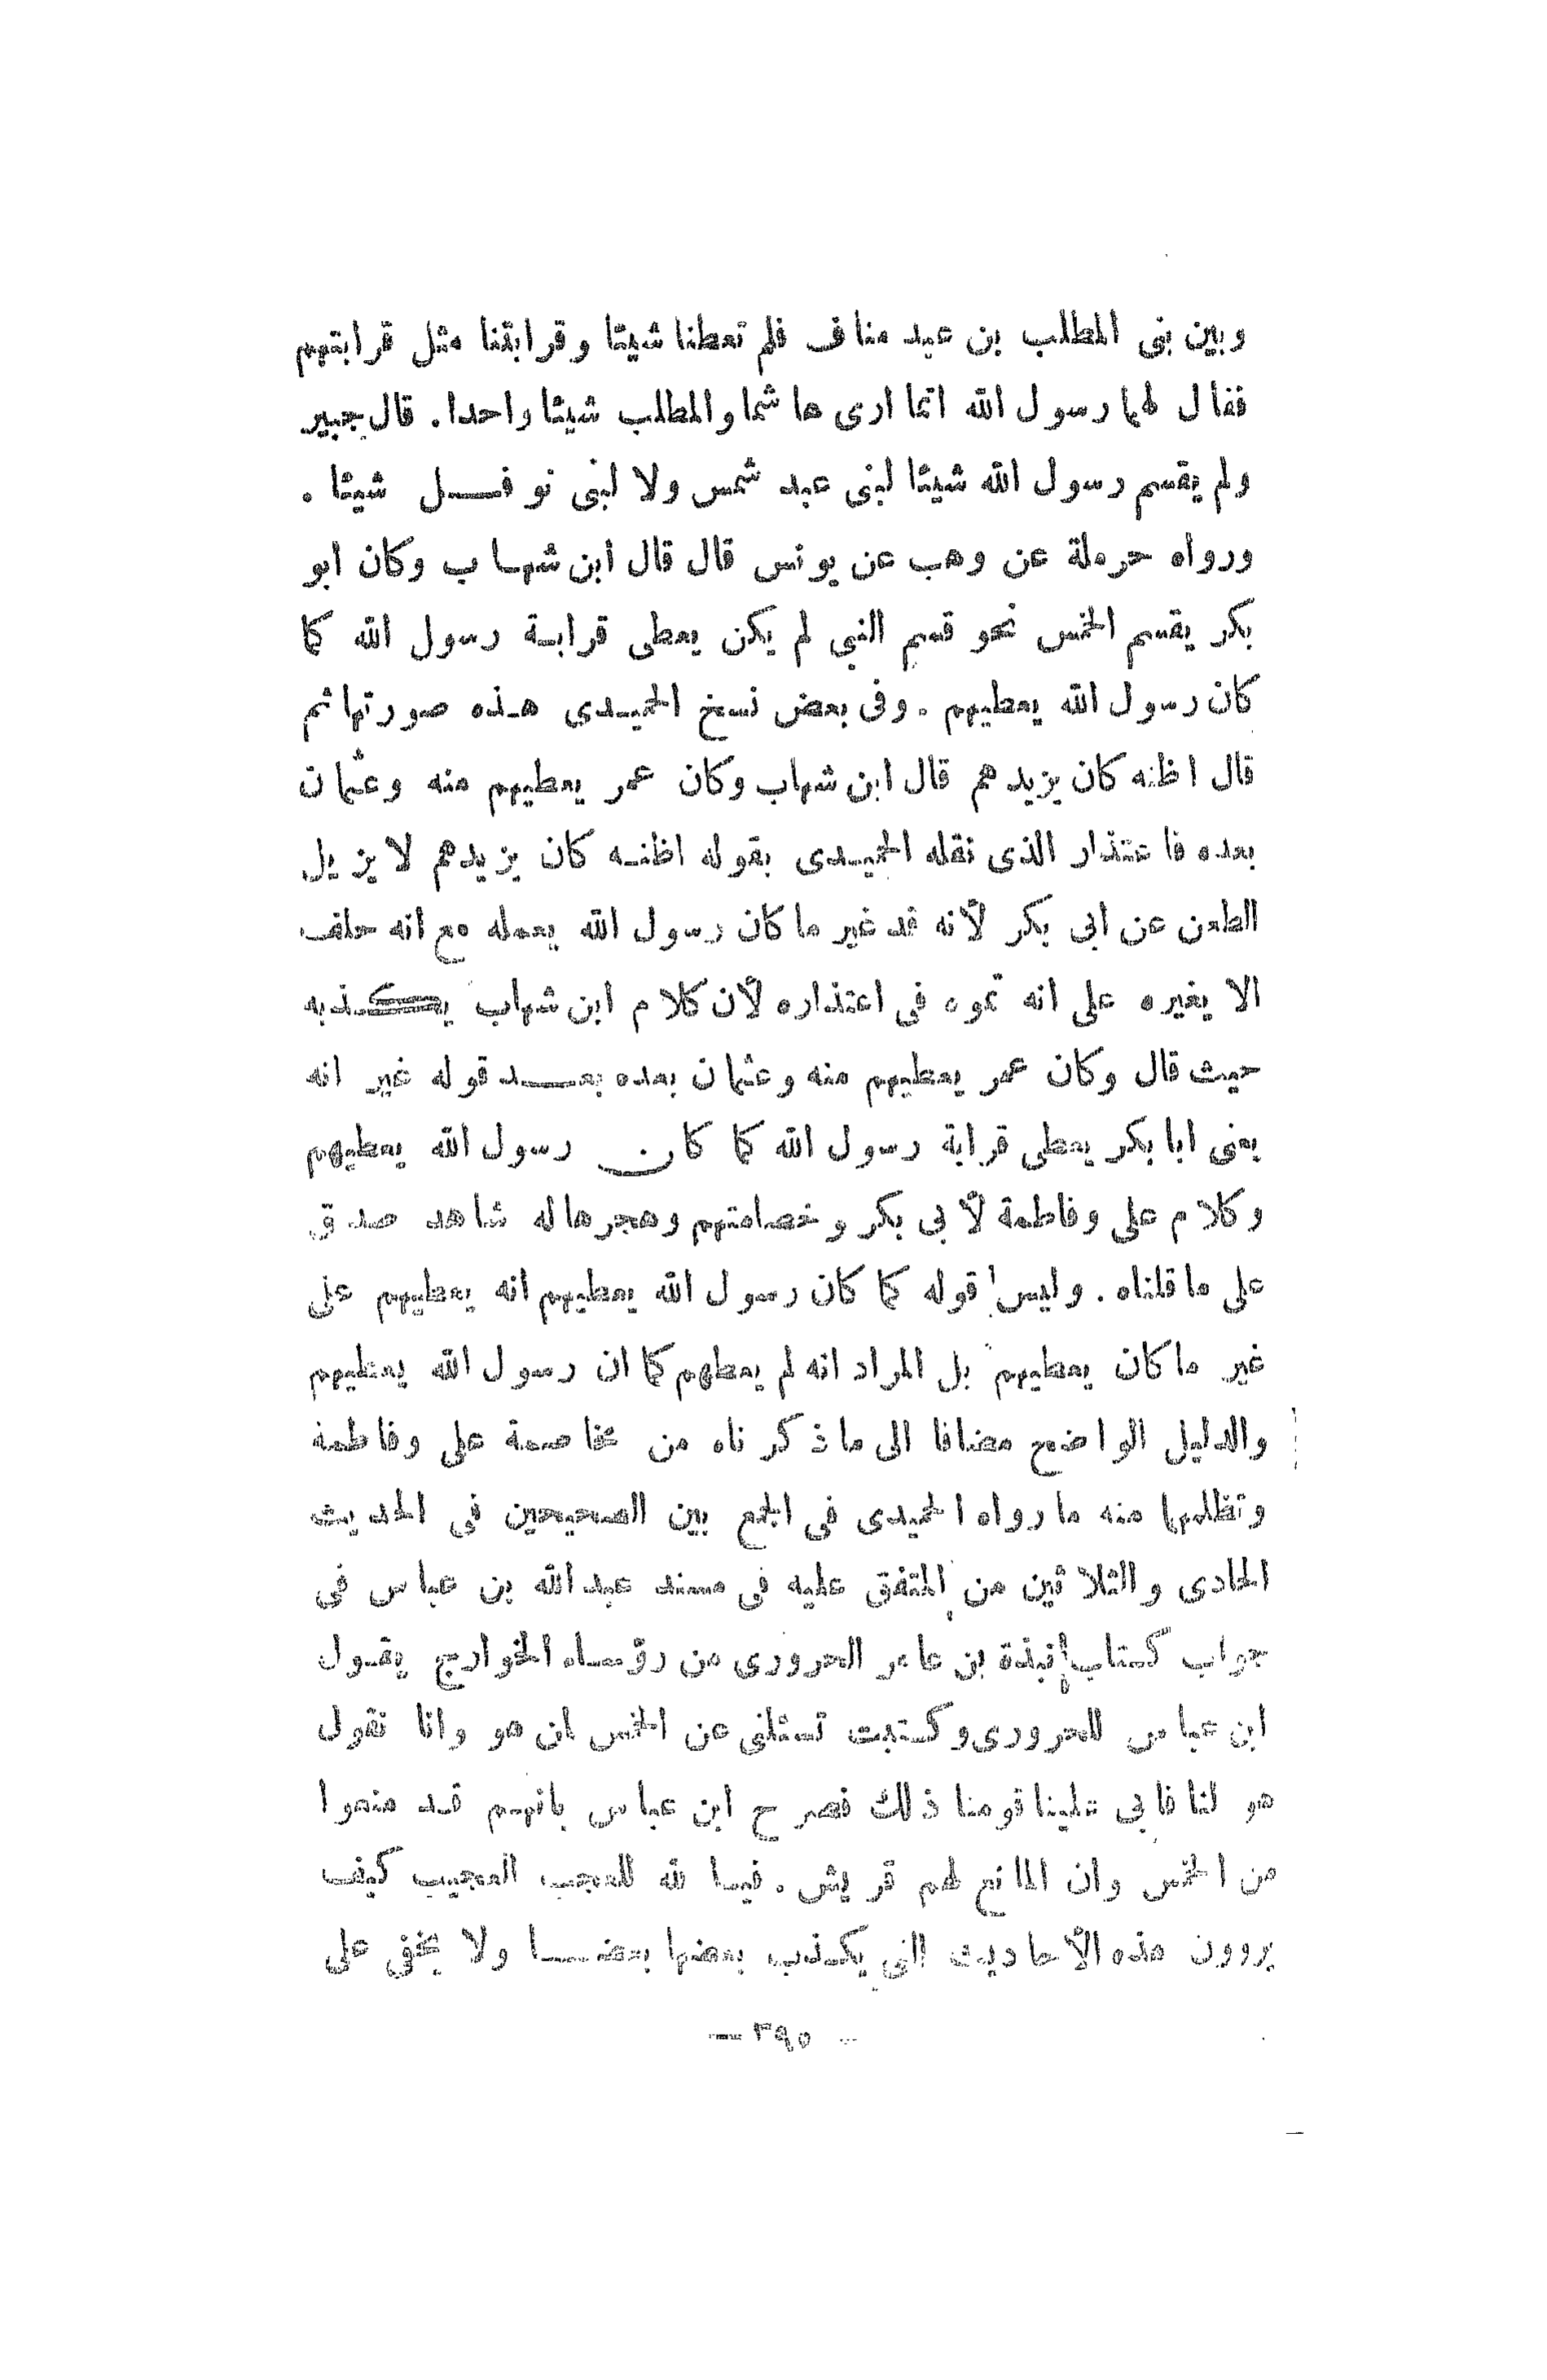 وبين بنى المطلب بن عبد مناف فلم تعطنا شيئا وقرابتنا مثل قرابتهم
فقال لهما رسول الله انما ارى هاشما والمطلب شيئا واحدا. قال جبير
ولم يقسم رسول الله شيئا لبنى عبد شمس ولا لبنى نوفل شيئا .
ورواه حرملة عن وهب عن يونس قال قال ابن شهاب وكان ابو
بكر يقسم الخمس نحو قسم النبى لم يكن يعطى قرابة رسول الله كما
كان رسول الله يعطيهم . وفى بعض نسخ الحميدى هذه صورتها ثم
قال اظنه كان يزيدهم قال ابن شهاب وكان عمر يعطيهم منه وعثمان
بعده فاعتذار الذى نقله الحميدى بقوله اظنه كان يزيدهم لا يزيل
الطعن عن ابى بكر لأنه قد غير ما كان رسول الله يعمله مع انه حلف
الا يغيره على انه تموه فى اعتذاره لأن كلام ابن شهاب يكذبه
حيث قال وكان عمر يعطيهم منه وعثمان بعده بعد قوله غير انه
يعنى ابا بكر يعطى قرابة رسول الله كما كان رسول الله يعطيهم
وكلام على وفاطمة لأبى بكر وخصامتهم وهجرها له شاهد صدق
على ما قلناه . وليس قوله كما كان رسول الله يعطيهم انه يعطيهم على
غير ما كان يعطيهم بل المراد انه لم يعطهم كما ان رسول الله يعطيهم
والدليل الواضح مضافا الى ما ذكرناه من مخاصمة على وفاطمة
وتظلمها منه ما رواه الحميدى فى الجمع بين الصحيحين فى الحديث
الحادى والثلاثين من المتفق عليه فى مسند عبد الله بن عباس فى
جواب كتاب بن عامر الحرورى من رؤساء الخوارج يقول
ابن عباس للحرورى وكتبت تسئلنى عن الخمس لمن هو وانا نقول
هو لنا فابى علينا قومنا ذلك فصرح ابن عباس بانهم قد منعوا
من الخمس وان المانع لهم قريش . فيا لله للعجب العجيب كيف
يروون هذه الأحاديث التى يكذب بعضها بعضا ولا يخفى على
— ٣٩٥ —